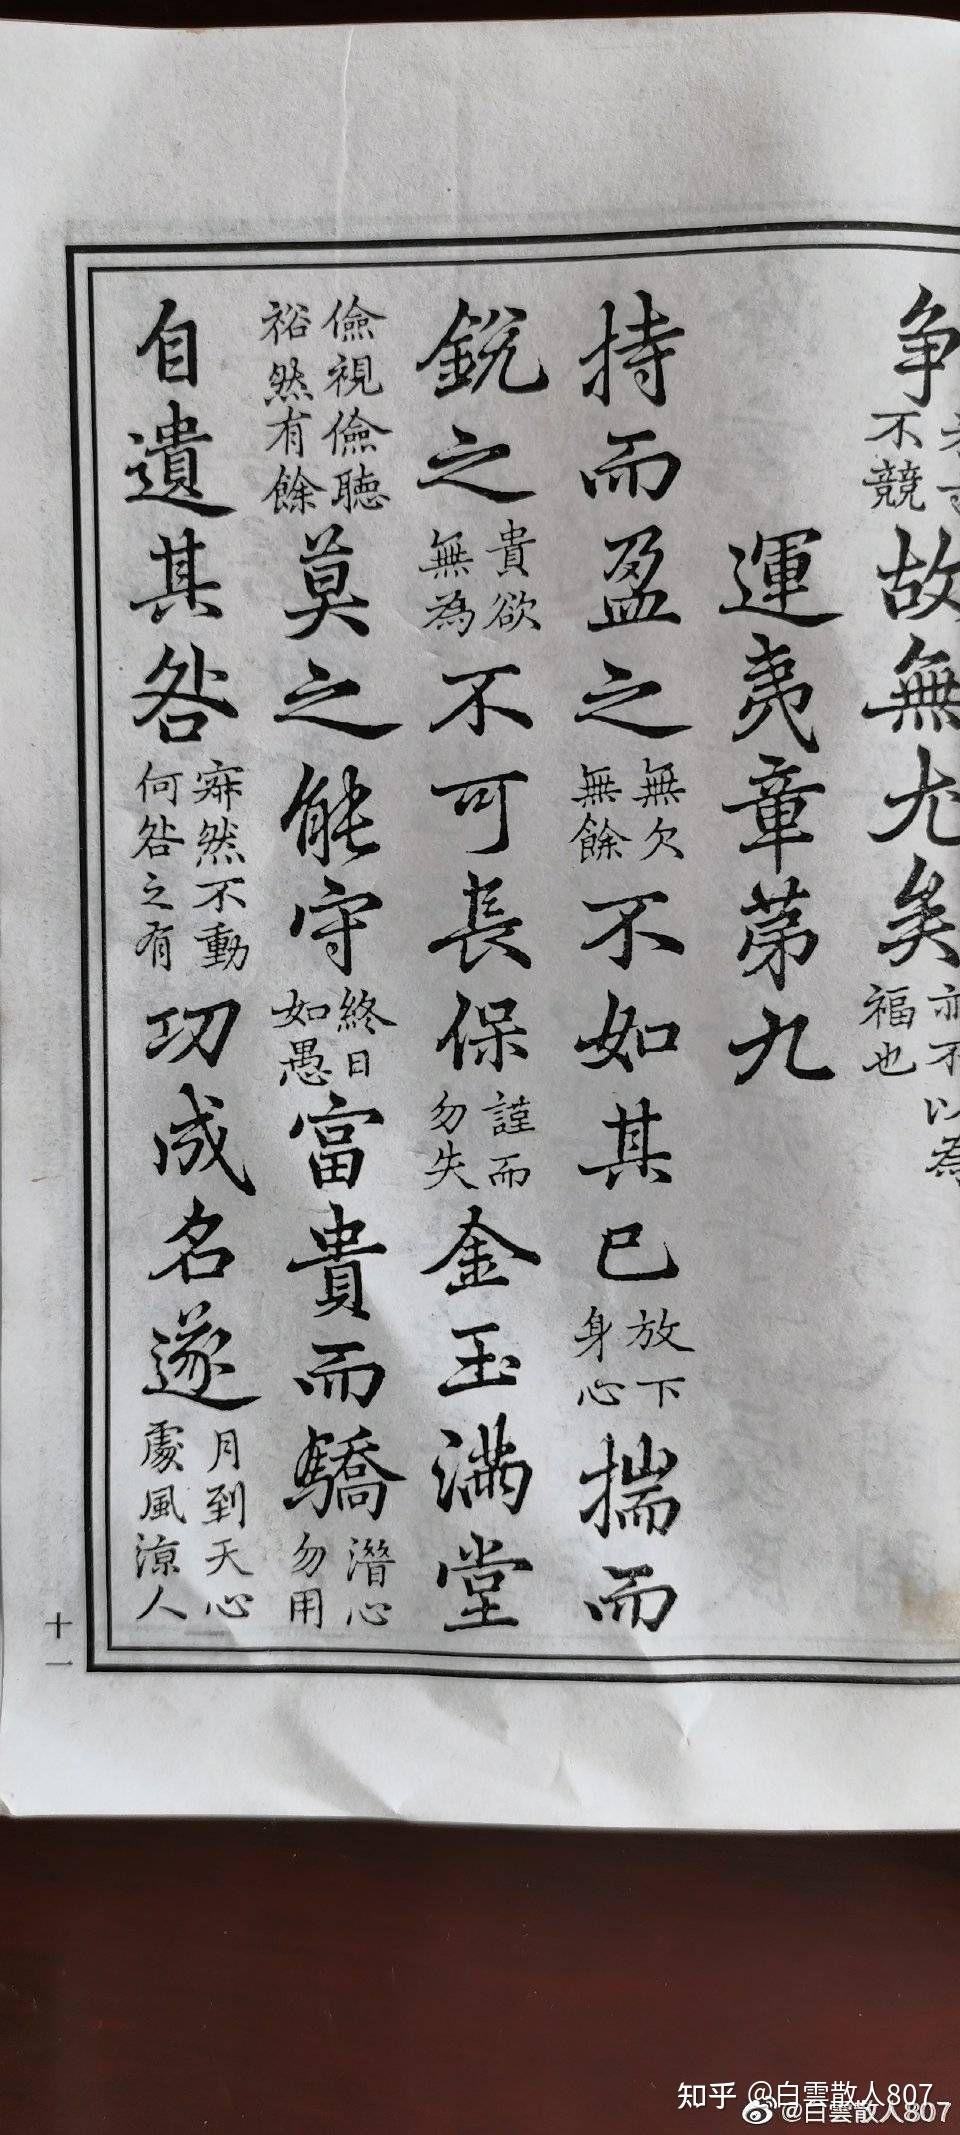 争不競故無尤矣亦不以為福也
運夷章第九
持而盈之無欠無餘不如其已放下身心揣而
銳之貴欲無為不可長保謹而勿失金玉滿堂
儉視儉聽裕然有餘莫之能守終日如愚富貴而驕潛心勿用
自遺其咎寂然不動何咎之有功成名遂月到天心處風凉人
十一
知乎 @白雲散人807
@白雲散人807